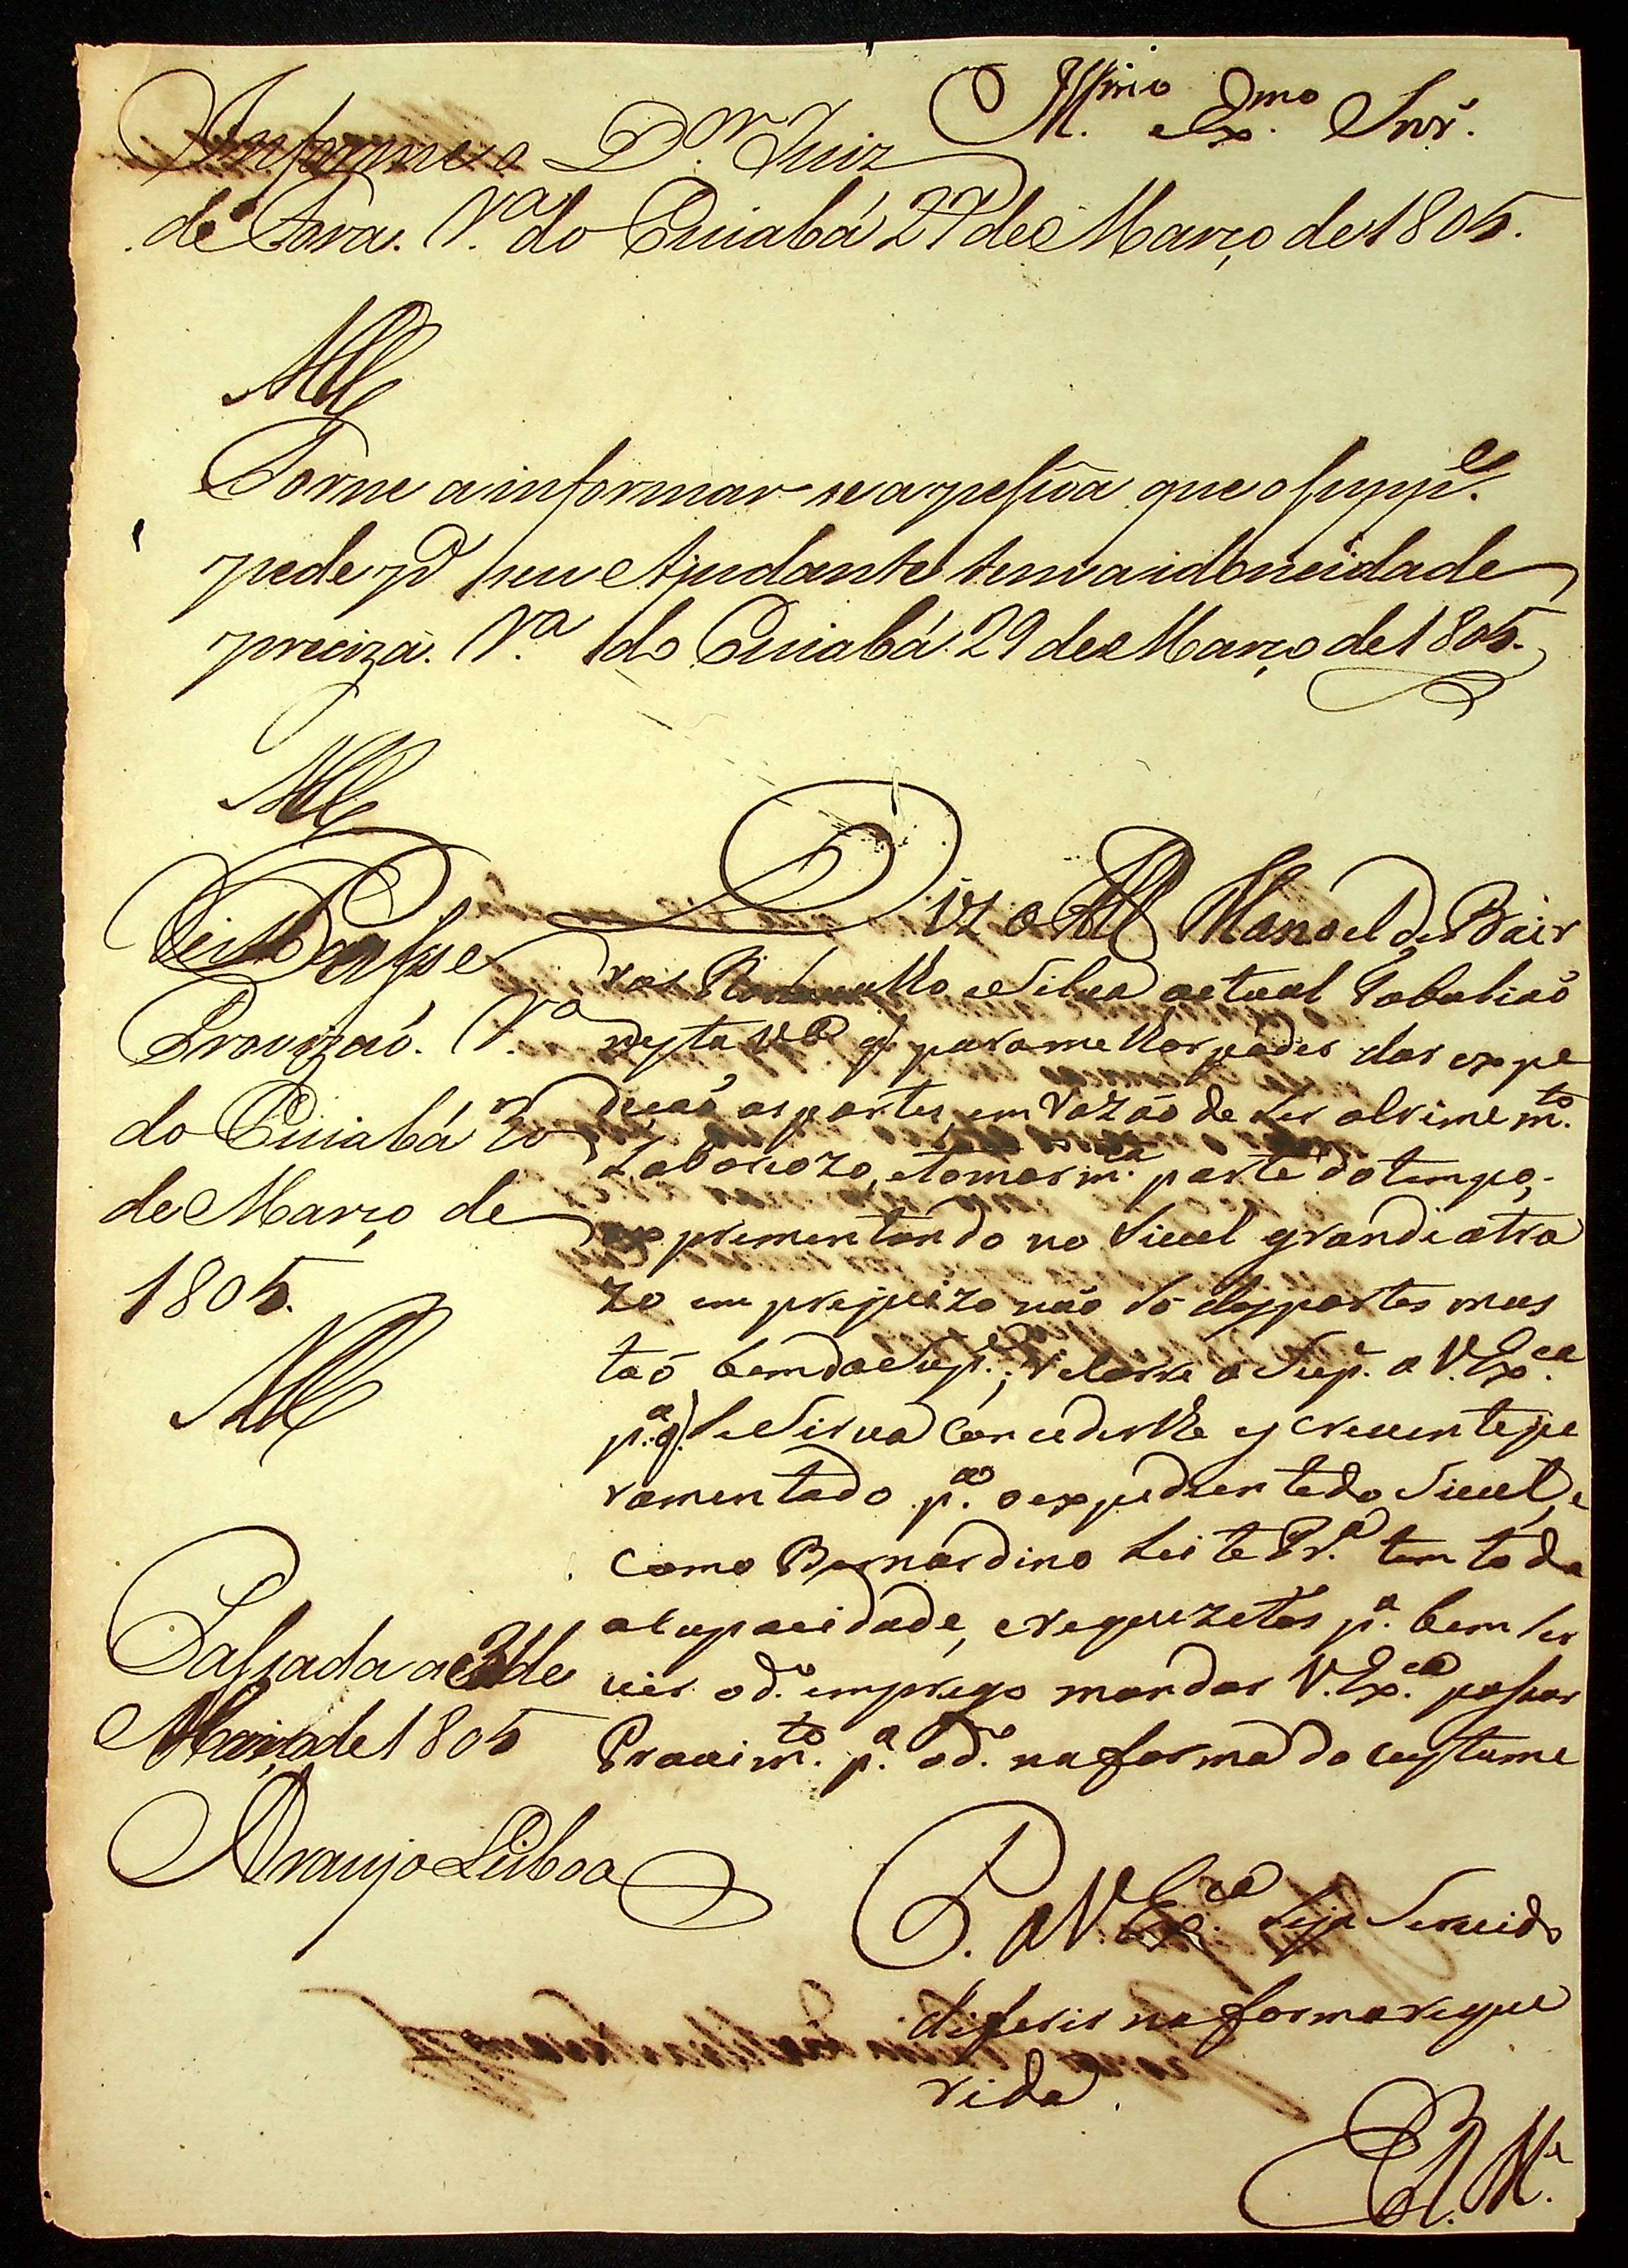 Ill.mo Ex.mo Snr.
Informe o D.or Juiz
de Fora. V.a do Cuiabá 29 de Março de 1805.
Torne a informar se a pessoa que o supp.e
pede p.a seu Ajudante tem a idoneidade
preciza. V.a do Cuiabá 29 de Março de 1805.
Passe
Provizaó. V.a
do Cuiabá
de Março de
1805.
Passada a 31 de
Março de 1805
Araujo Lisboa
Diz o Manoel de Bair
ros e Silva actual Tabaliaõ
desta V.a q para melhor poder dar expe
dicaõ as partes, em razaõ de ser o crime m.to
Laborozo, e tomar m.ta parte do tempo,
exprementando no Sivel grande atra
zo em prejuizo não só das partes mas
taõ bem do Sup.e; recorre o Sup. a V. Ex.ca
p.a q se sirva concederlhe escrevente ju
ramentado p.a o expediente do Sivel, e
como Bernardino Leite Pr.a tem toda
a capacidade, e requezetos p.a bem ser
vir o d.o emprego mandar V. Ex.ca passar
Provim.to p.a o d.o na forma do custume
P. a V. Ex.ca seja servido
diferir na forma reque
rida.
E. R. M.e